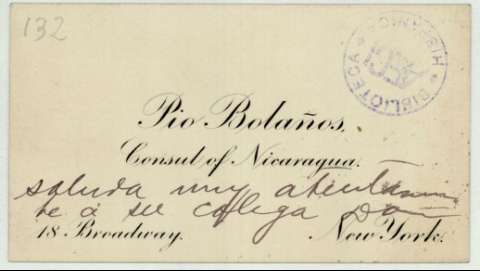 132
BIBLIOTECA HISPANIC
Pio Bolaños,
Consul of Nicaragua.
saluda muy atentamen
te á su colega Don
18 Broadway. New York.